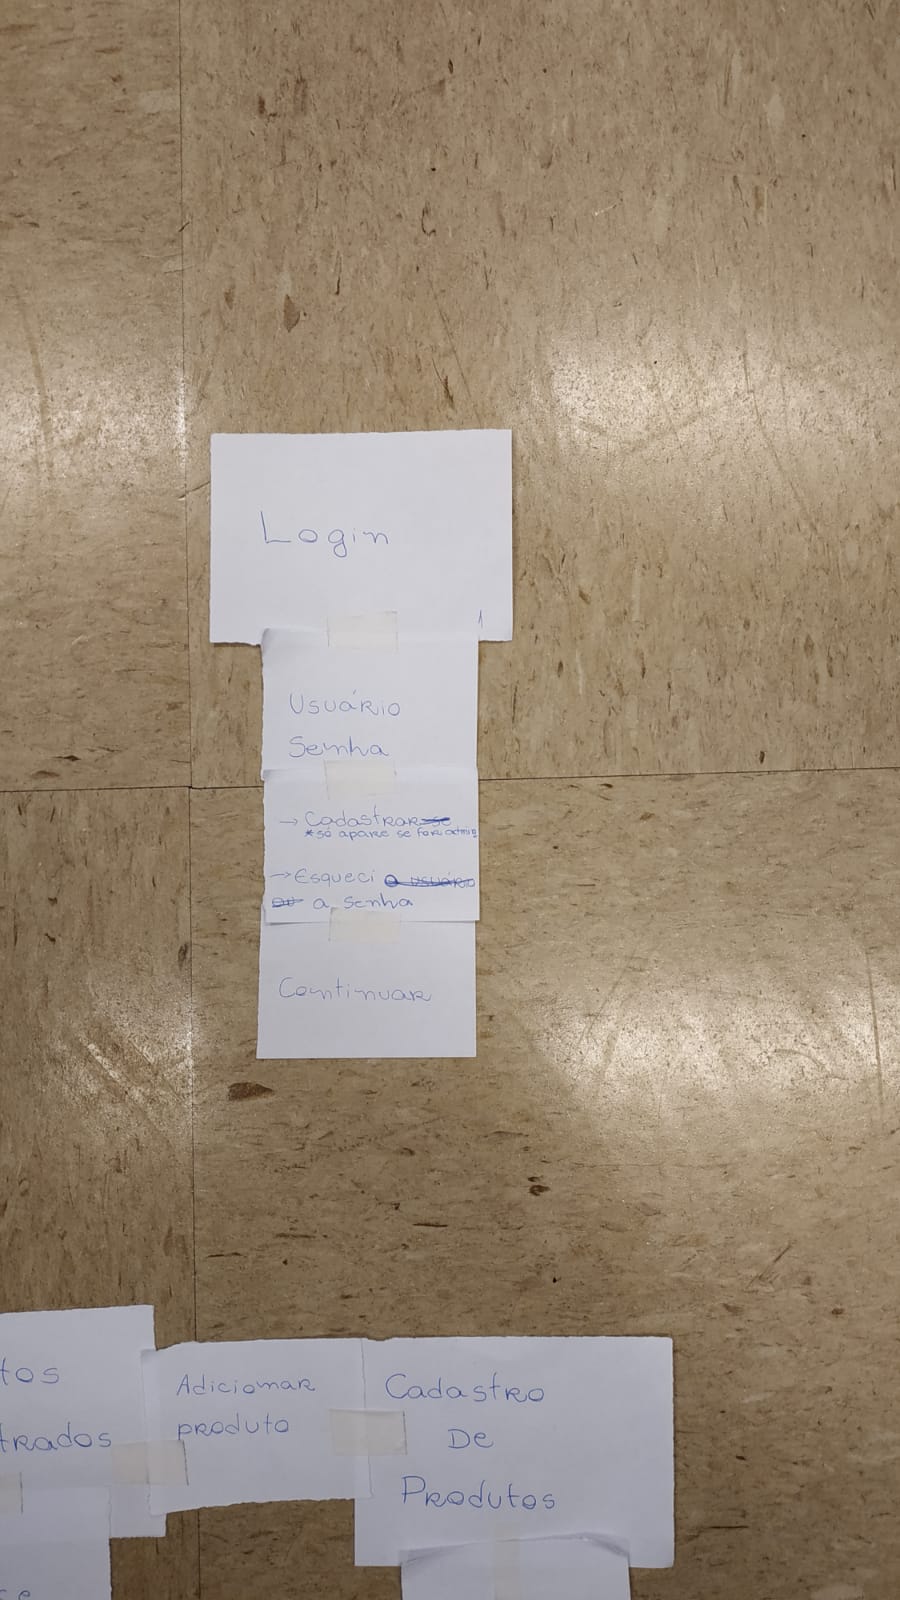 Login
1
Usuário
Senha
→ Cadastrar se
*só apare se for admin
→ Esqueci o usuário
ou a senha
Continuar
tos
trados
Adicionar
produto
Cadastro
De
Produtos